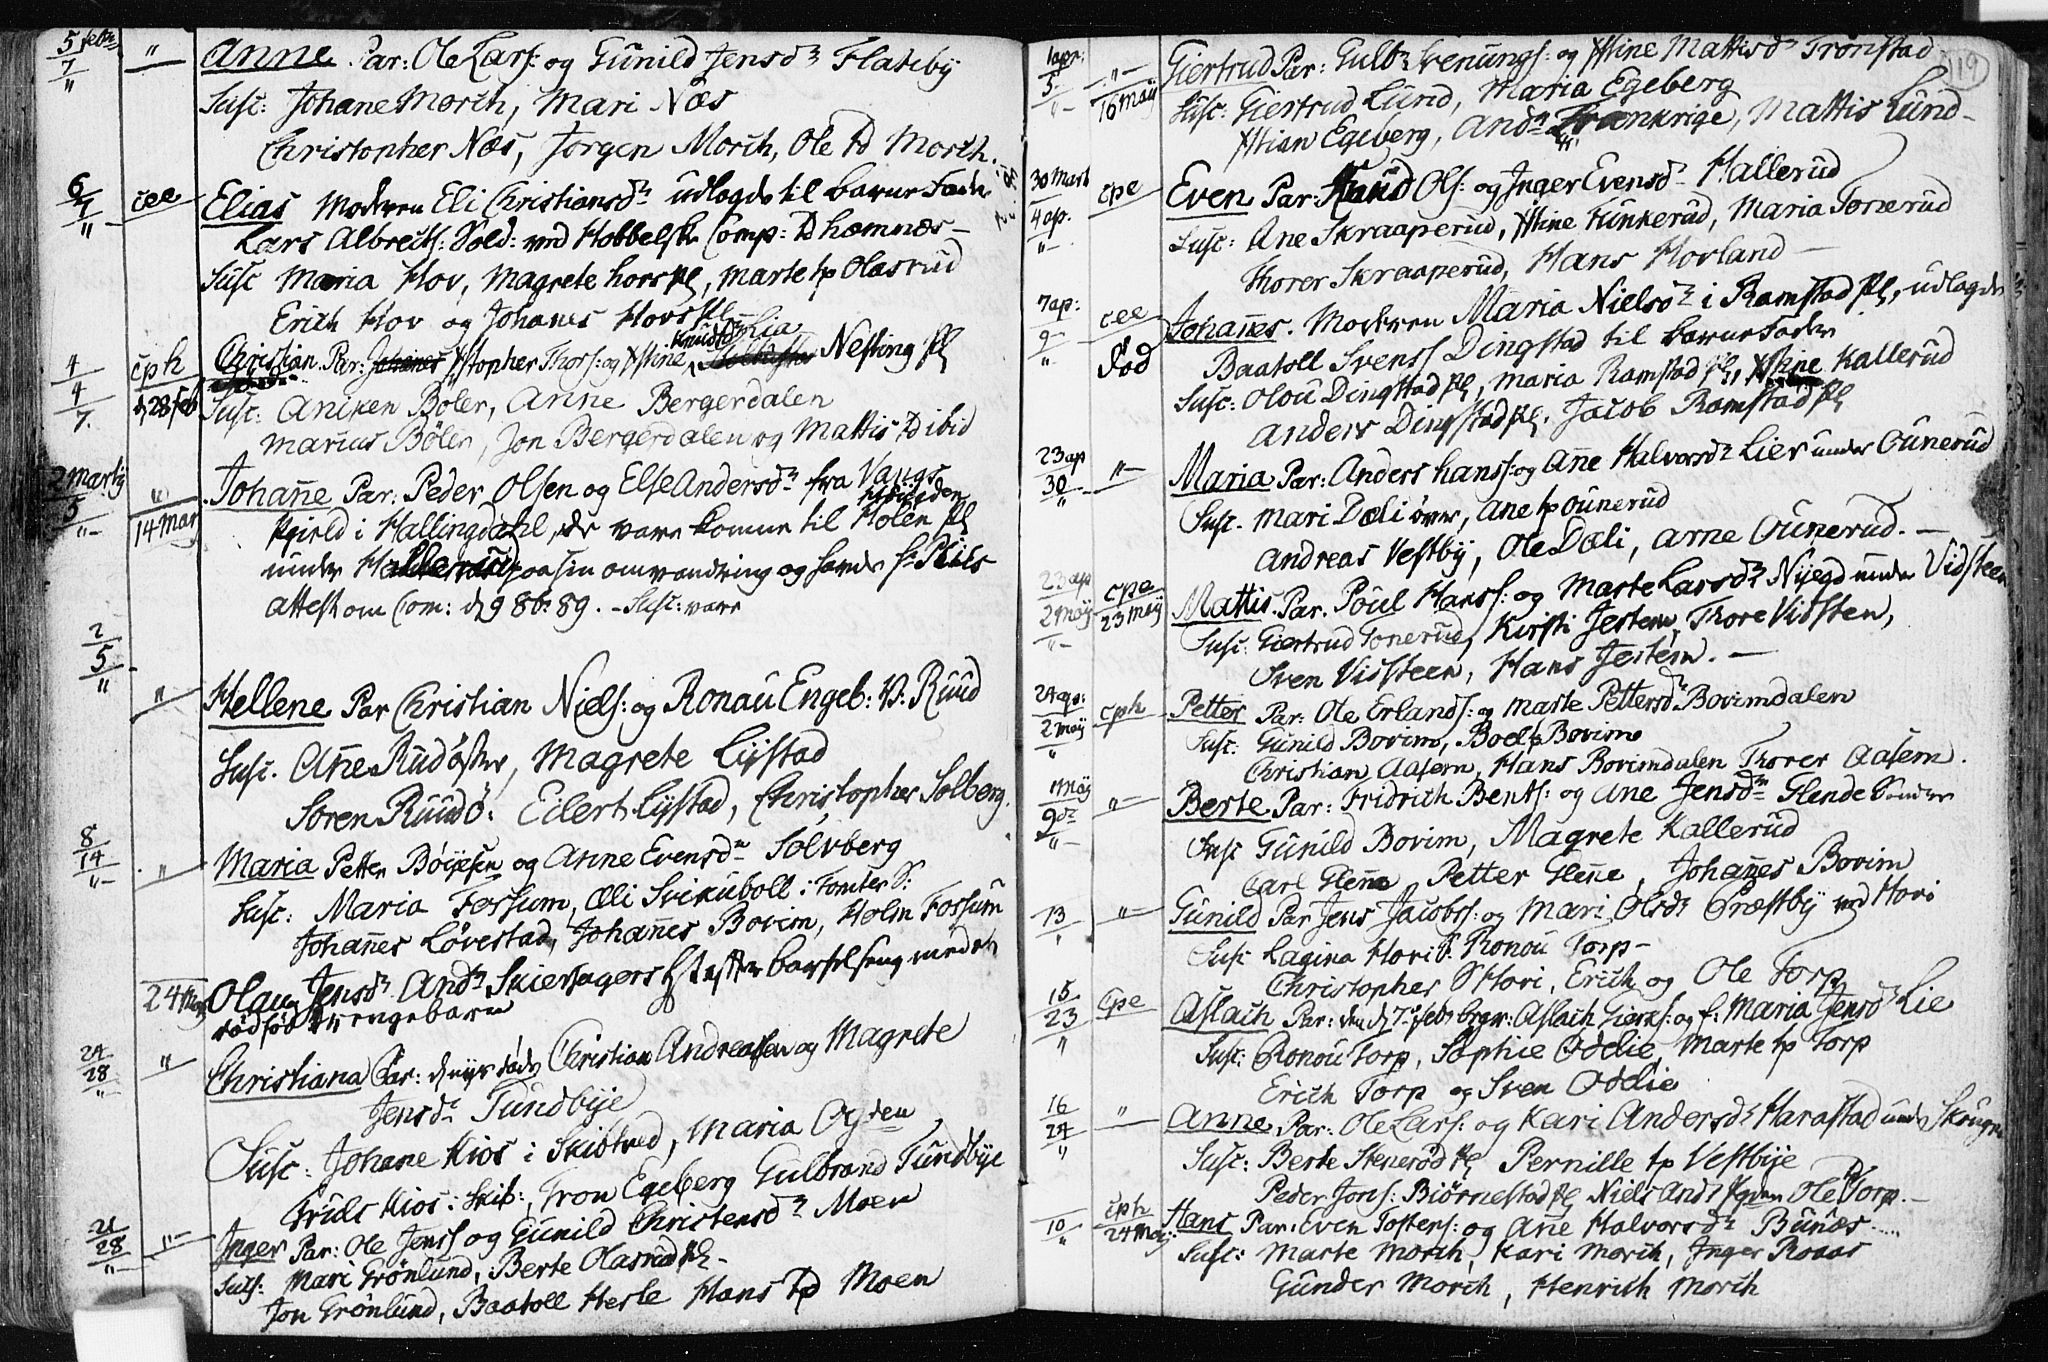 5 febr
7
"
" Anne Par: Ole Lars: og Gunild Jensdr Flateby
Susc: Johane Morch, Mari Næs
Christopher Næs, Jørgen Morch, Ole td Morch.
6
7
"
cce Elias Moderen Eli Christiansdr udlagde til barne Fader
Lars Albrects: Sold: ved Hobbelsk Comp: td hæmnæs –
Susc Maria Hov, Magrete horspl, Marte tp Olasrud
Erich Hov og Johanes Hovspl
Knudsdr Lia
4
4
7.
cph
d 28 feb
Christian Par: Xstopher Thors: og Xstine Nesting pl
Susc: Aniken Boler, Anne Bergerdalen
Marius Böler, Jon Bergerdalen og Mattis td ibid
2 Marty
5
"–
"
14 Mar
Johañe Par: Peder Olsen og Else Andersdr fra Vangs
gield i Hallingdahl, de vare komne til Holen pl
under aasen omvandring og havde
attest om Com: d 9 8br 89. – Susc: vare
2
5
"
" Hellene Par Christian Niels: og Ronau Engeb: D: Ruud
Susc. Añe Rud öster, Magrete Lystad
Soren Ruud ö: Edert Lystad, Christopher Solberg.
8
14
"–
" Maria Petter Böyesen og Anne Evensdr Solvberg
Susc: Maria Fossum, Æli Svikuboll i Tomter S:
Johañes Løvestad, Johañes Bovim, Holm Fossum
24 May Olaug Jensdr Andr Skiersagers H: efter barselseng med et
dödföd drengebarn
24
28
"
" Christiana Par: d nys döde Christian Andreasen og Magrete
Jensdr Tundbye
Susc: Johane Kios i Skibtved, Maria Ogden
Friils Kios: Skib:, Tron Egeberg Gulbrand Tundbye
21
28
"–
"– Inger Par: Ole Jenss og Gunild Christensdr Moen
Susc: Mari Grönlund, Berte Olasrud pl –
Jon Grönlund, Baatoll Herle Hans td Moen
119
1 apr:
5 –
"–
"–
16 May
Giertrud Par: Gulbr Svenungs: og Xstine Mattisdr Tronstad
Susc: Giertrud Lund, Maria Egeberg
Xstian Egeberg, Andr Frankrige, Mattis Lund –
30 Mart
4 ap.
"–
cpe Even Par: Knud Ols: og Inger Evensdr Hallerud
Susc: Ane Skraaperud, Xstine Funkerud, Maria Tonerud
Thorer Skraaperud, Hans Hovland –
7 ap:
9 –
"
cce
Död
Johañes. Moderen Maria Nielsdr i Ramstad pl, udlagde
Baatoll Svenss Dingstad til barne Fader
Susc: Olou Dingstad pl, Maria Ramstad pl, Xstine Kallerud
Anders Dingstad pl. Jacob Ramstad pl
23 ap
30
"
"– Maria Par: Anders hanss: og Añe Halvorsdr Lier under Ounerud
Susc. Mari Dæli över, Ane tp Ounerud
Andreas Vestby, Ole Dæli, Arne Ounerud. –
23 ap
2 May
"–
cpe
23 May
Mattis. Par. Poul Hanss: og Marte Larsdr Nyegd under Vidsteen
Susc: Giertrud Tonerud, Kirsti Jestem, Thore Vidsten,
Sven Vidsteen, Hans Jestem. –
24 ap:
2 May
"
cph Petter Par: Ole Erlands: og Marte Pettersdr Bovimdalen
Susc: Gunild Bovim, Boel tp Bovim
Christian Aasem, Hans Bovimdalen Thorer Aasem.
1 May
9 de
"–
"– Berte Par: Fridrich Bents: og Ane Jensdr Glende Sönder
Susc Gunild Bovim, Magrete Kallerud
Carl Gleñe Petter Gleñe, Johañes Bovim
13
"
"– Gunild Par Jens Jacobs: og Mari Olsdr Præstby ved Hovi
Susc Lagina Hovi S. Ronou Torp –
Christopher S Hovi, Erich og Ole Torp
15
23
"
cpe Aslach Par: den d 7 feb: begr: Aslach Giers: og f: Maria Jensdr Lie
Susc: Ronou Torp, Sophie Oddie, Marte tp Torp
Erich Torp og Sven Oddie
16
24
"
" Anne Par: Ole Lars: og Kari Andersdr Harastad under Skrugr
Susc: Berte Stenerød pl Pernille tp Vestbye
Peder Jons: Biörnestad pl Niels And: Ole Torp. –
10
"
cph
24 May:
Hans Par: Even Tosters: og Ane Halvorsdr Bunæs
Susc: Marte Morch, Kari Morch, Inger Roaas
Gunder Morch, Henrich Morch